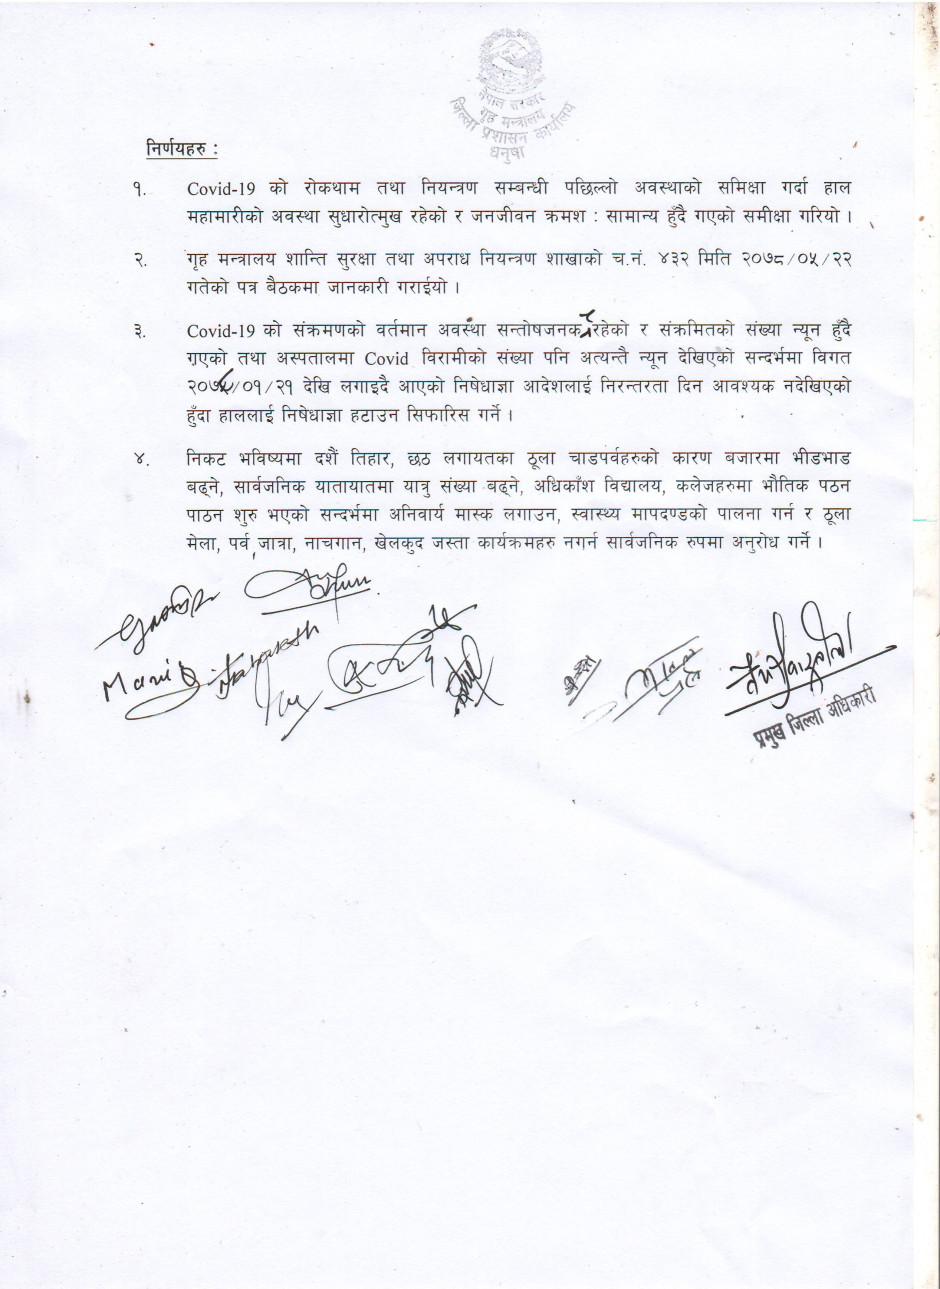 नेपाल सरकार
गृह मन्त्रालय
जिल्ला प्रशासन कार्यालय
धनुषा
निर्णयहरु :
१. Covid-19 को रोकथाम तथा नियन्त्रण सम्बन्धी पछिल्लो अवस्थाको समिक्षा गर्दा हाल
महामारीको अवस्था सुधारोत्मुख रहेको र जनजीवन क्रमश : सामान्य हुँदै गएको समीक्षा गरियो ।
२. गृह मन्त्रालय शान्ति सुरक्षा तथा अपराध नियन्त्रण शाखाको च.नं. ४३२ मिति २०७८/०५/२२
गतेको पत्र बैठकमा जानकारी गराईयो ।
३. Covid-19 को संक्रमणको वर्तमान अवस्था सन्तोषजनक रहेको र संक्रमितको संख्या न्यून हुँदै
गएको तथा अस्पतालमा Covid विरामीको संख्या पनि अत्यन्तै न्यून देखिएको सन्दर्भमा विगत
२०७८/०१/२१ देखि लगाइदै आएको निषेधाज्ञा आदेशलाई निरन्तरता दिन आवश्यक नदेखिएको
हुँदा हाललाई निषेधाज्ञा हटाउन सिफारिस गर्ने ।
४. निकट भविष्यमा दशैं तिहार, छठ लगायतका ठूला चाडपर्वहरुको कारण बजारमा भीडभाड
बढ्ने, सार्वजनिक यातायातमा यात्रु संख्या बढ्ने, अधिकाँश विद्यालय, कलेजहरुमा भौतिक पठन
पाठन शुरु भएको सन्दर्भमा अनिवार्य मास्क लगाउन, स्वास्थ्य मापदण्डको पालना गर्न र ठूला
मेला, पर्व जात्रा, नाचगान, खेलकुद जस्ता कार्यक्रमहरु नगर्न सार्वजनिक रुपमा अनुरोध गर्ने ।
प्रमुख जिल्ला अधिकारी